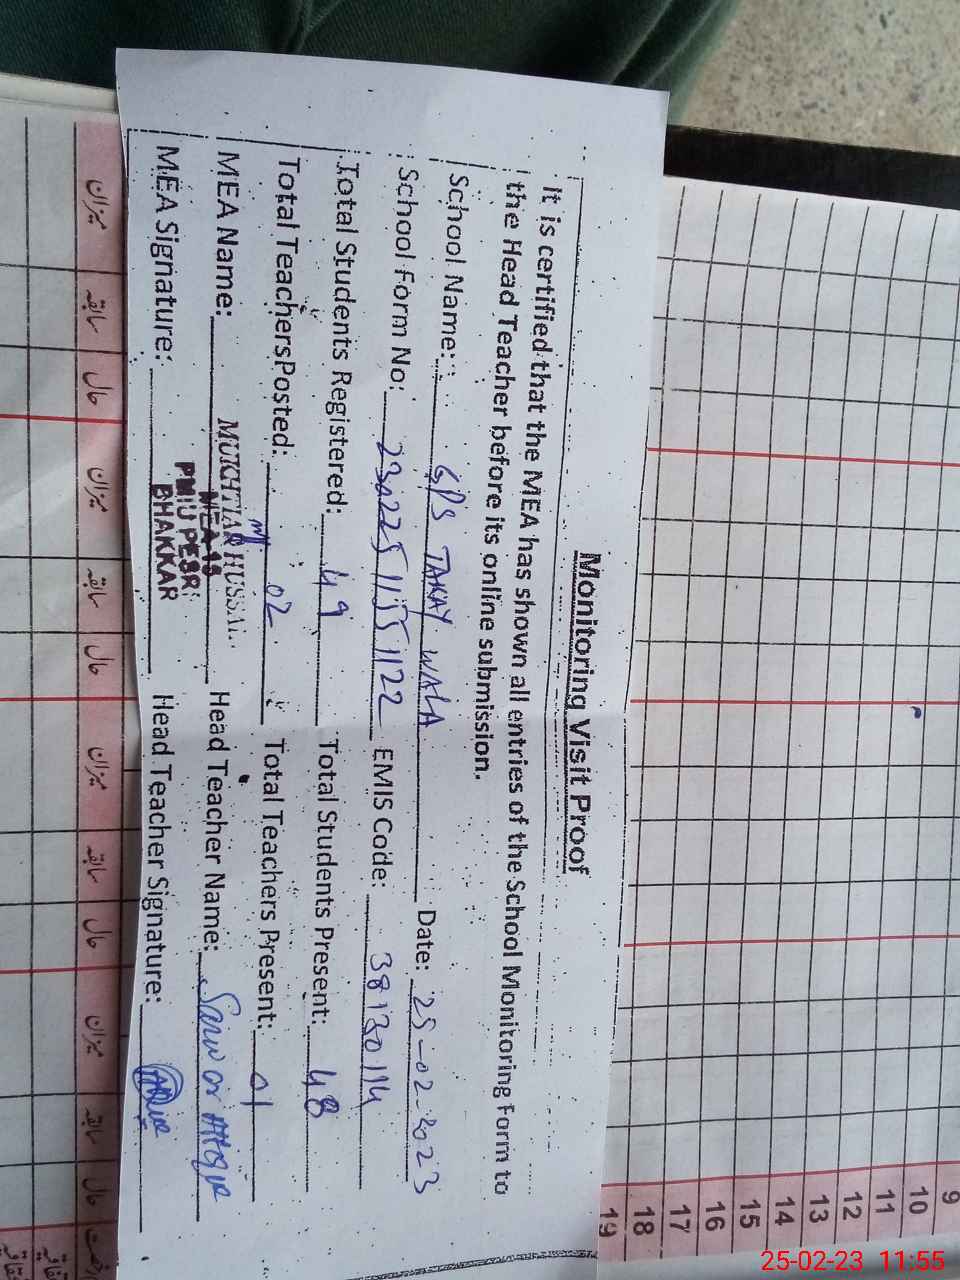 Monitoring Visit Proof
It is certified that the MEA has shown all entries of the School Monitoring Form to
the Head Teacher before its online submission.
School Name: GPS TAKAY WALA Date: 25-02-2023
School Form No: 230225 EMIS Code: 38130114
Total Students Registered: 49 Total Students Present: 48
Total Teachers Posted: 02 Total Teachers Present: 01
MEA Name: MUKHTIAR HUSSAI Head Teacher Name:
MEA-15
MEA Signature: Head Teacher Signature:
PMIU PESRP
BHAKKAR
9
10
11
12
13
14
15
16
17
18
19
میزان سابقہ حال میزان سابقہ حال میزان سابقہ حال میزان سابقہ حال
25-02-23 11:55